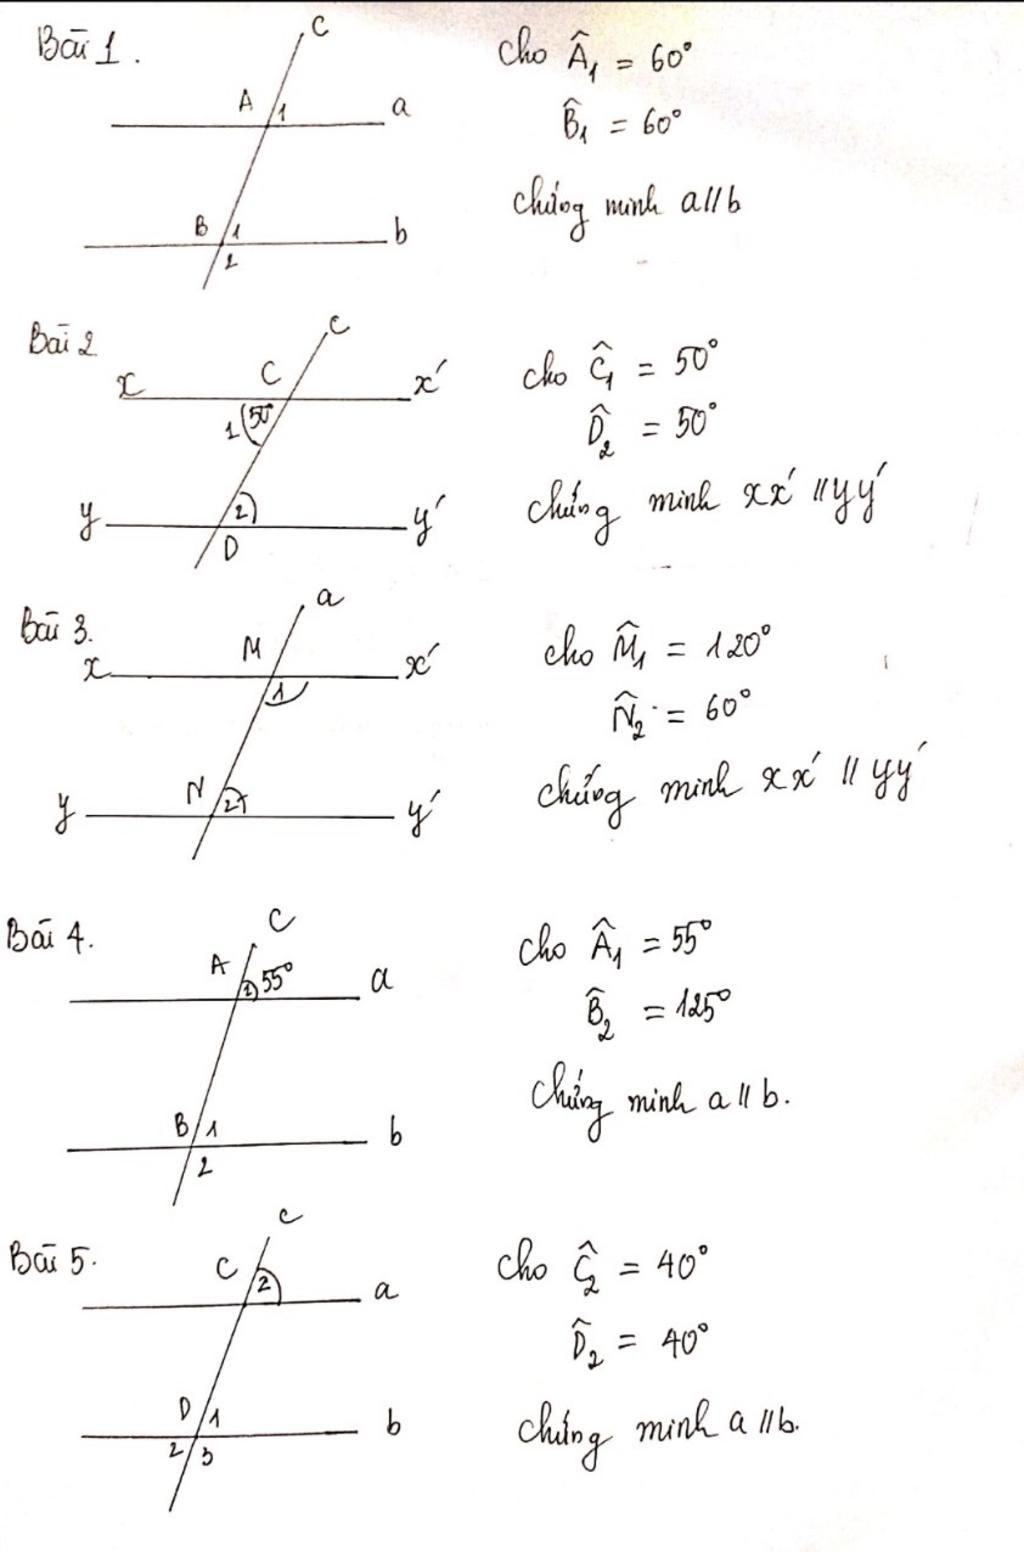 Bài 1.
c
A 1 a
B 1 b
2
cho Â₁ = 60°
B̂₁ = 60°
chứng minh a//b
Bài 2
c
x C x'
1 50°
y 2 y'
D
cho Ĉ₁ = 50°
D̂₂ = 50°
chứng minh xx' // yy'
Bài 3.
a
x M x'
1
N 2
y y'
cho M̂₁ = 120°
N̂₂ = 60°
chứng minh xx' // yy'
Bài 4.
c
A 1 55° a
B 1 b
2
cho Â₁ = 55°
B̂₂ = 125°
chứng minh a // b.
Bài 5.
c
C 2 a
D 1 b
2 3
cho Ĉ₂ = 40°
D̂₂ = 40°
chứng minh a // b.